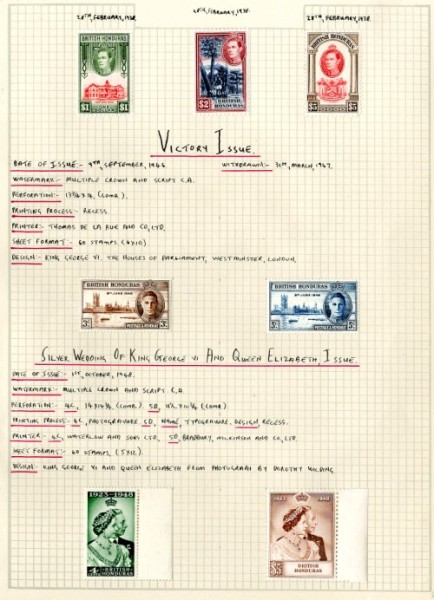 28TH, FEBRUARY, 1938.
28TH, FEBRUARY, 1938.
28TH, FEBRUARY, 1938.
BRITISH HONDURAS
$1 $1
$2
BRITISH HONDURAS
BRITISH HONDURAS
$5 $5
VICTORY ISSUE.
DATE OF ISSUE:- 9TH, SEPTEMBER, 1946 WITHDRAWN:- 31ST, MARCH, 1947.
WATERMARK:- MULTIPLE CROWN AND SCRIPT C.A.
PERFORATION:- (COMB).
PRINTING PROCESS:- RECESS.
PRINTER:- THOMAS DE LA RUE AND CO, LTD.
SHEET FORMAT:- 60 STAMPS. (6X10)
DESIGN:- KING GEORGE VI. THE HOUSES OF PARLIAMENT, WESTMINSTER, LONDON.
BRITISH HONDURAS
8TH JUNE 1946
3c POSTAGE & REVENUE
BRITISH HONDURAS
8TH JUNE 1946
POSTAGE & REVENUE
SILVER WEDDING OF KING GEORGE VI AND QUEEN ELIZABETH, ISSUE.
DATE OF ISSUE:- 1ST, OCTOBER, 1948.
WATERMARK:- MULTIPLE CROWN AND SCRIPT C.A.
PERFORATION:- 4C, (COMB) 5D, (COMB)
PRINTING PROCESS:- 4C, PHOTOGRAVURE 5D, NAME, TYPOGRAVURE, DESIGN RECESS.
PRINTER:- 4C, WATERLOW AND SONS LTD. 5D, BRADBURY, WILKINSON AND CO, LTD.
SHEET FORMAT:- 60 STAMPS. (5X12).
DESIGN:- KING GEORGE VI AND QUEEN ELIZABETH FROM PHOTOGRAPH BY DOROTHY WILDING
1923-1948
4c BRITISH HONDURAS
1923 1948
BRITISH HONDURAS
$5